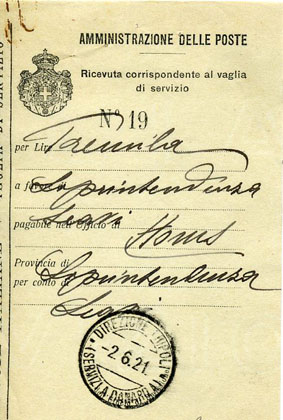 AMMINISTRAZIONE DELLE POSTE
Ricevuta corrispondente al vaglia
di servizio
N° 19
per Lire Tremila
a favore Soprintendenza
Scavi
pagabile nell'Ufficio di Homs
Provincia di
per conto di Soprintendenza
Scavi
DIREZIONE TRIPOLI
2.6.21
(SERVIZI A DANARO)